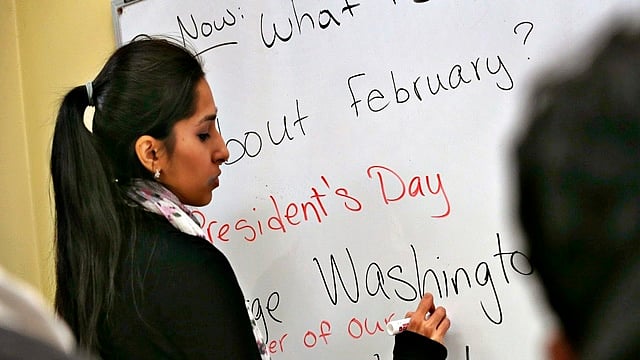 Now: What
bout February?
President's Day
ge Washingto
er of our